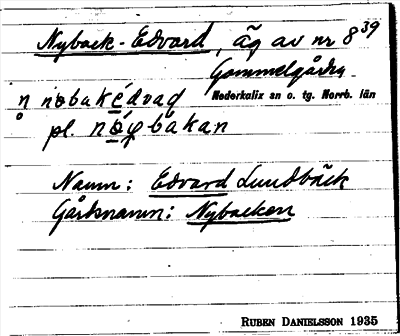 Nyback-Edvard, äg av nr 8³⁹
Gammelgården
Nederkalix sn o. tg. Norrb. län
Namn: Edvard Lundbäck
Gårdsnamn: Nybacken
RUBEN DANIELSSON 1935